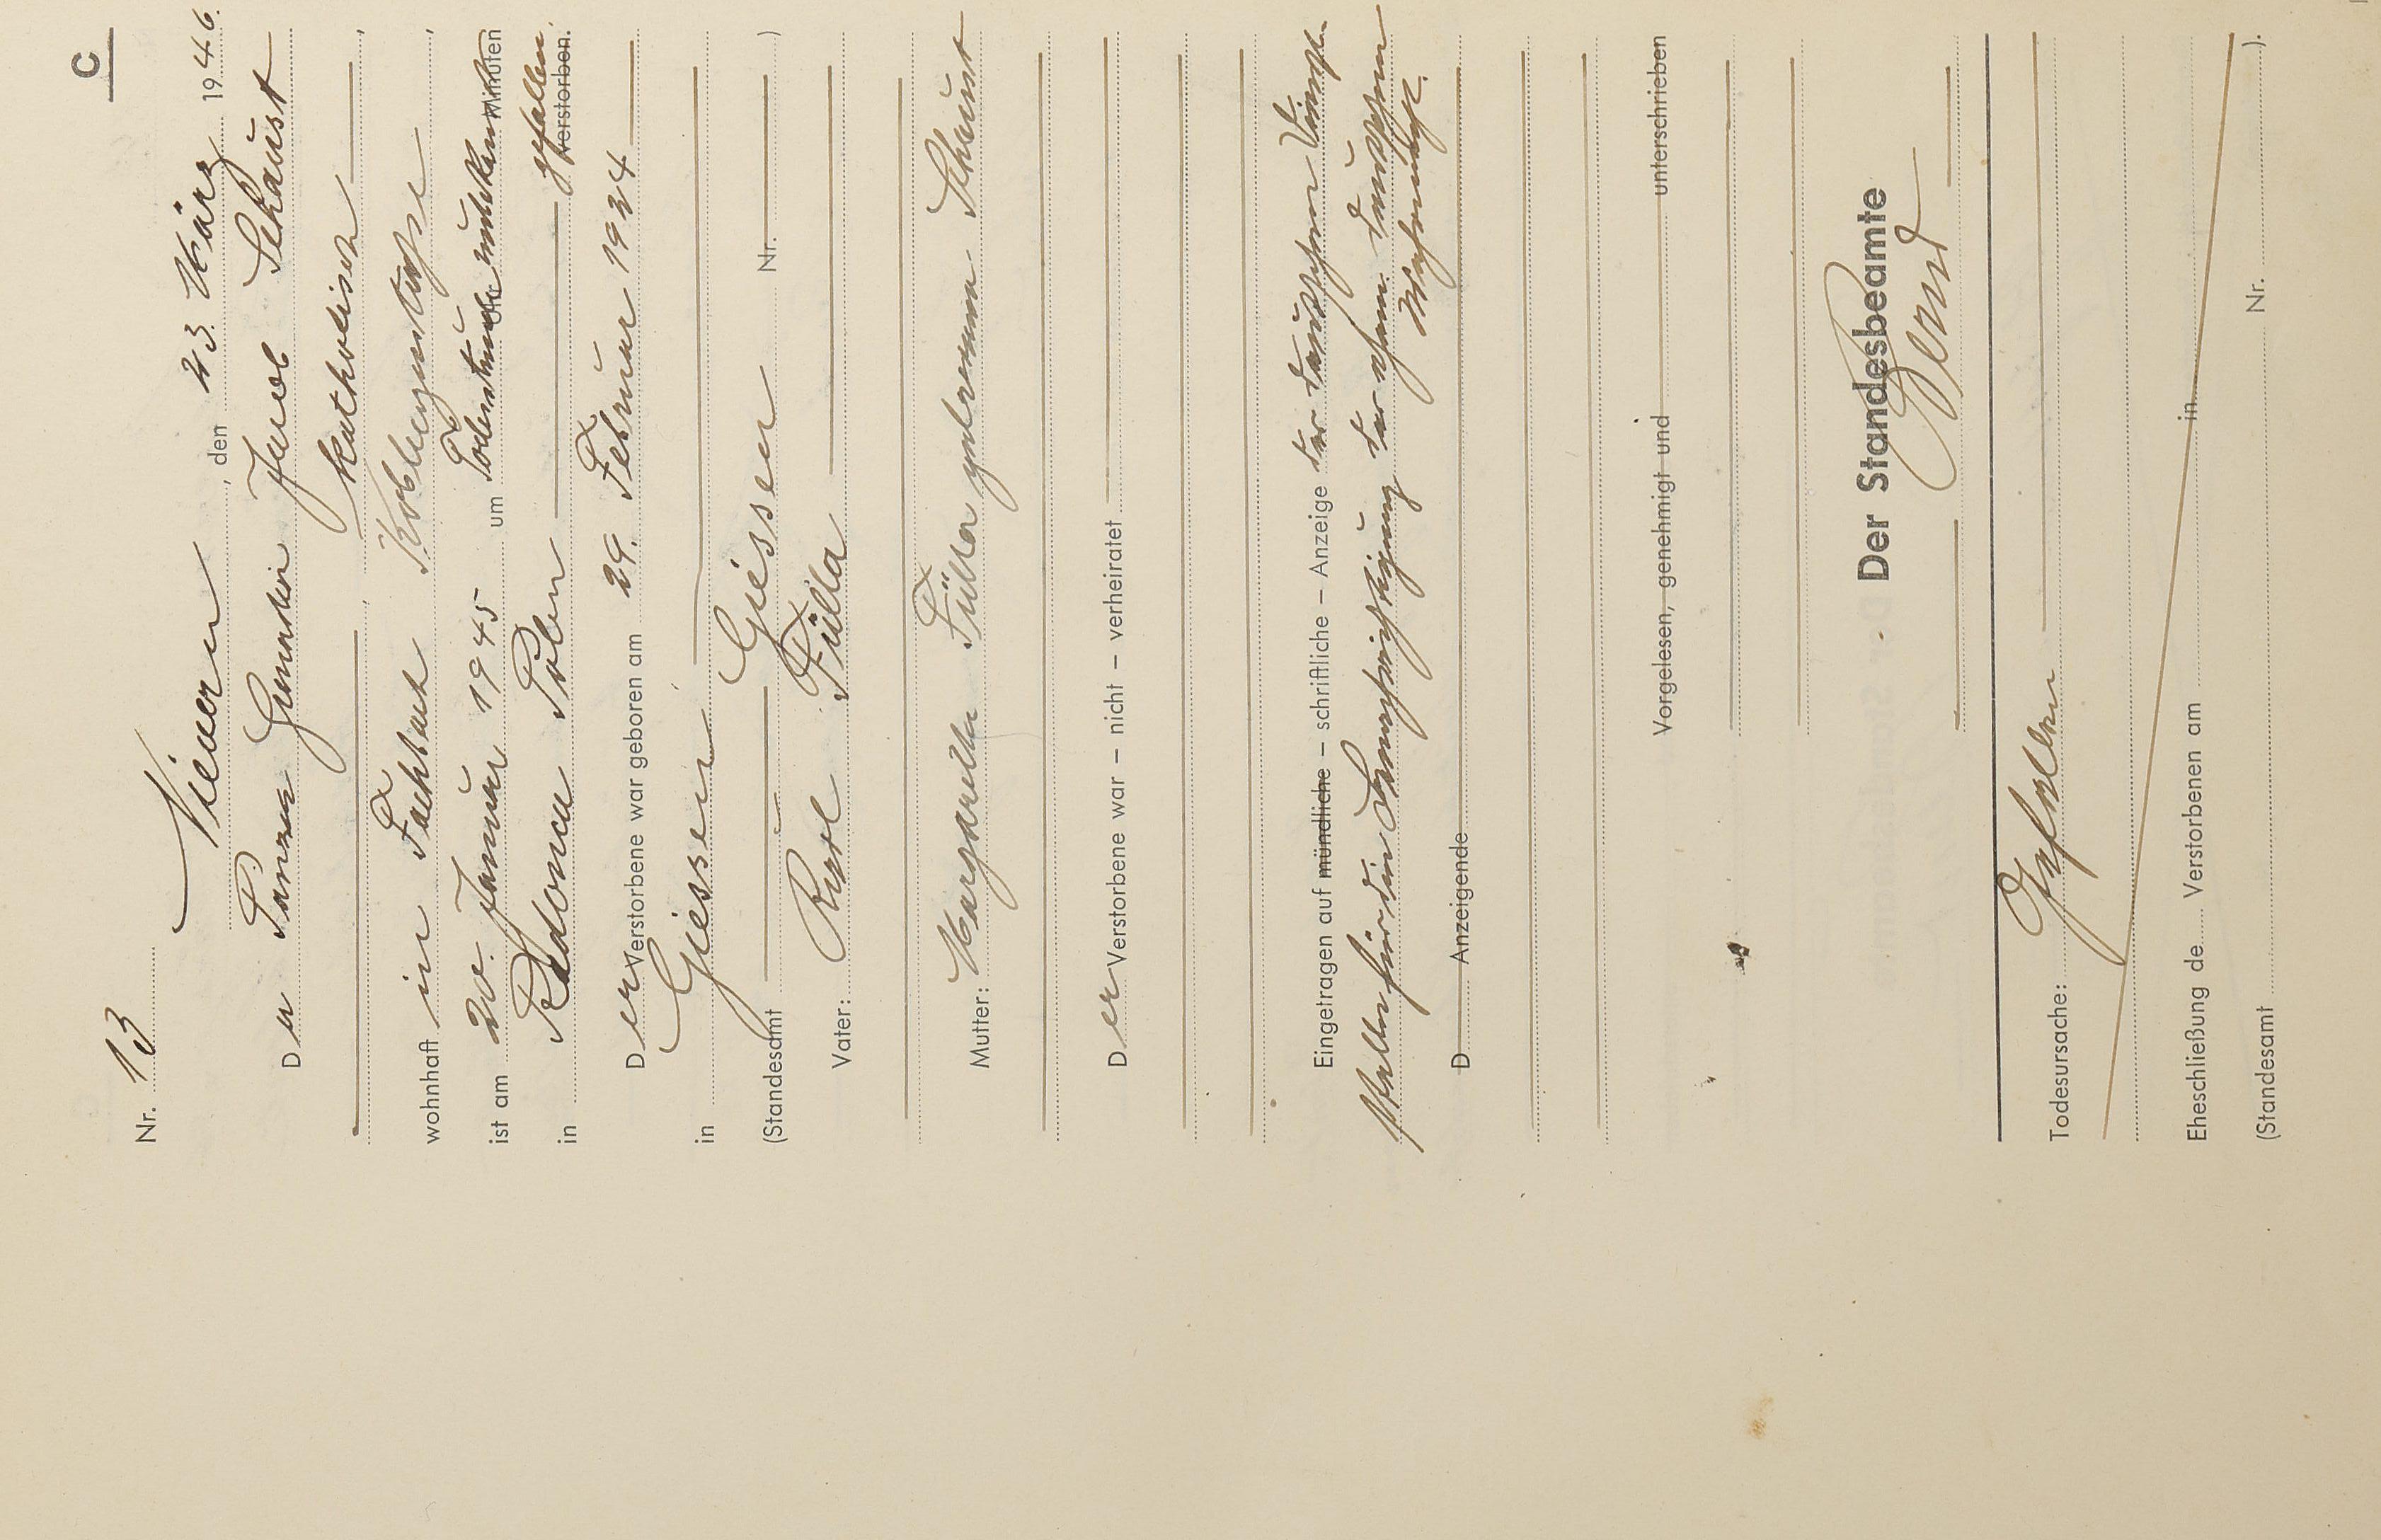 C
Nr. 13
Nievern, den 23. März 1946.
Der Panzer Grenadier Jacob Schaust
katholisch
wohnhaft in Fachbach Koblenzerstraße
ist am 20. Januar 1945 um Todesstunde Uhr unbekannt Minuten
in Radomcu Polen gefallen verstorben.
Der Verstorbene war geboren am 29. Februar 1924
in Giessen
(Standesamt Giessen Nr. )
Vater: Fülla
Mutter: Margaretha Fülla geborene Schaust
Der Verstorbene war – nicht – verheiratet
Eingetragen auf mündliche – schriftliche – Anzeige der deutschen Dienst-
stelle für die Benachrichtigung der ehem. deutschen
Wehrmacht.
D Anzeigende
Vorgelesen, genehmigt und unterschrieben
Der Standesbeamte
Todesursache: Gefallen
Eheschließung de Verstorbenen am in
(Standesamt Nr. ).